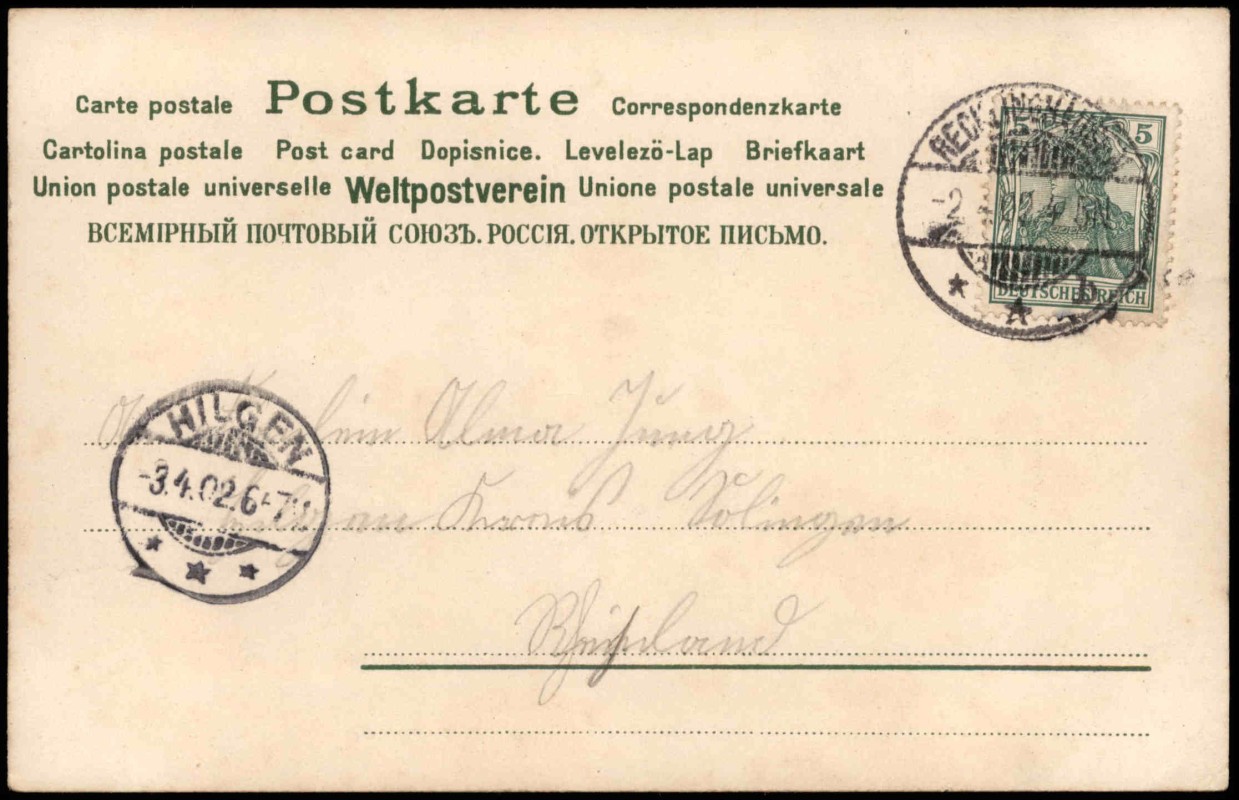 Carte postale Postkarte Correspondenzkarte
Cartolina postale Post card Dopisnice. Levelezö-Lap Briefkaart
Union postale universelle Weltpostverein Unione postale universale
ВСЕМІРНЫЙ ПОЧТОВЫЙ СОЮЗЪ. РОССІЯ. ОТКРЫТОЕ ПИСЬМО.
5
DEUTSCHES REICH
-2
HILGEN
-3.4.02.6-7
Alma Jung
Kreis Solingen
Rheinland